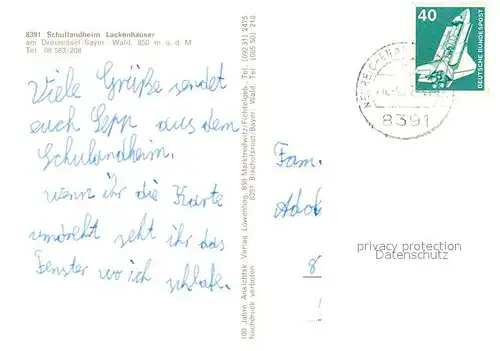 8391 Schullandheim Lackenhäuser
am Dreisessel Bayer. Wald, 850 m ü. d. M
Tel. 08 583/208
Viele Grüße sendet
euch Sepp aus dem
Schulandheim.
wenn ihr die Karte
umdreht seht ihr das
Fenster wo ich schlafe.
100 Jahre Ansichtsk. Verlag Löwenhag, 859 Marktredwitz/Fichtelgeb., Tel. (092 31) 2475
Nachdruck verboten 8391 Bischofsreut/Bayer. Wald, Tel. (085 50) 210
40
DEUTSCHE BUNDESPOST
NEUREICHENAU
8391
Fam.
Adol
8
privacy protection
Datenschutz